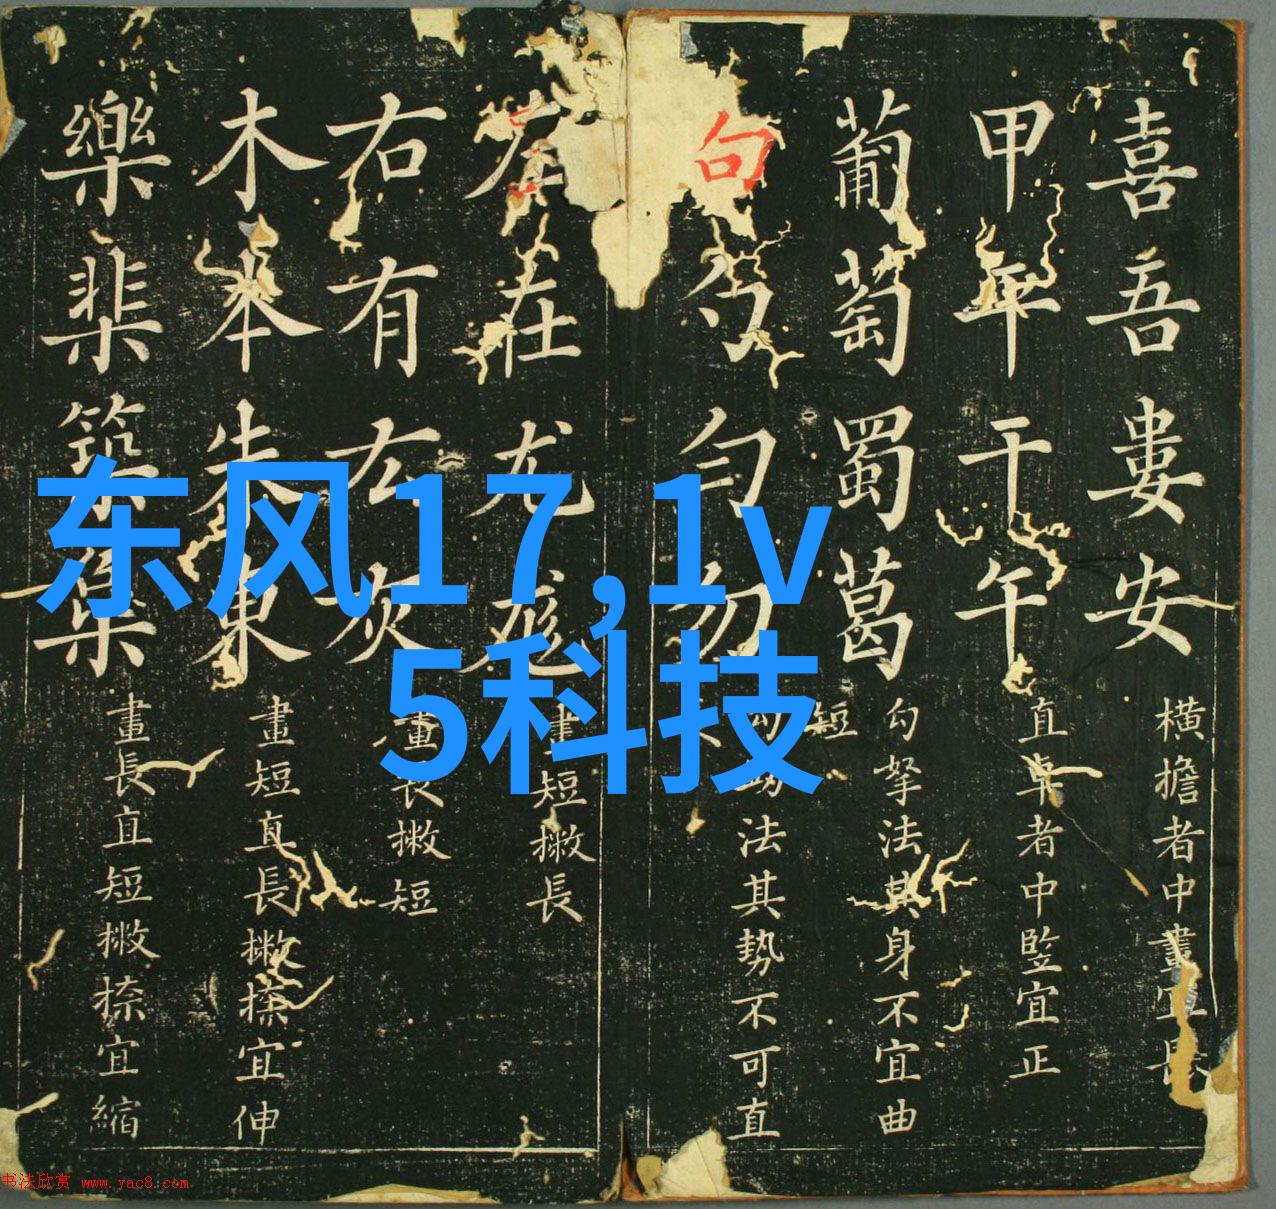 东风17,1v
5科技
喜吾婁安
横擔者中畫宜長
甲干午
直卓者中竪宜正
葡萄蜀葛
勾拏法其身不宜曲
短
句勹匀勿
法其勢不可直
在尤
畫短撇長
右有灰
畫長撇短
木本朱東
畫短直長撇捺宜伸
樂棐築
畫長直短撇捺宜縮
书法欣赏 www.yac8.com